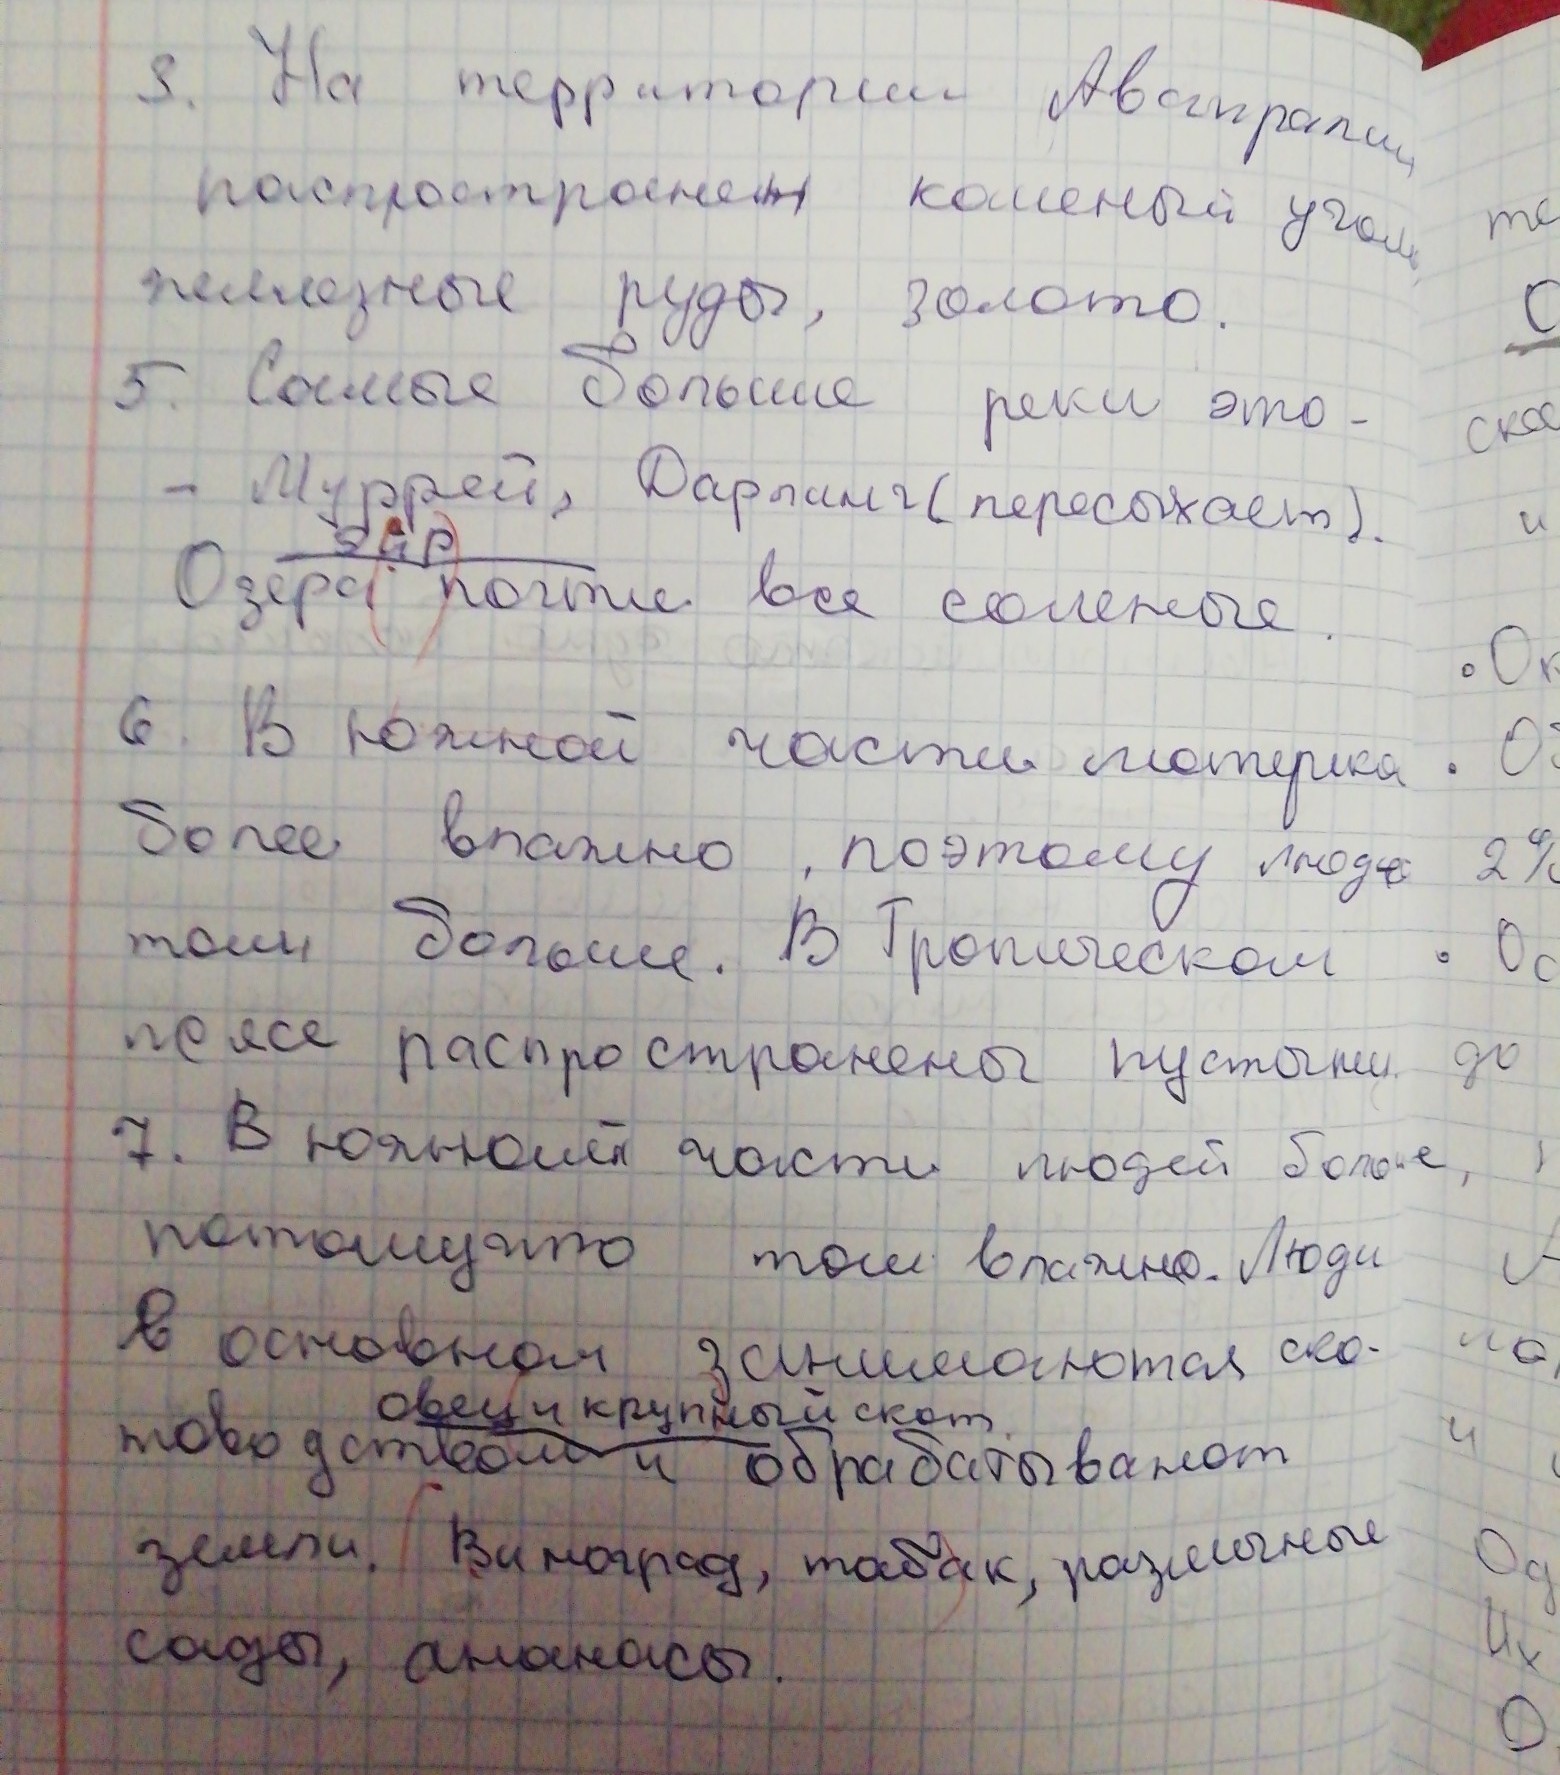 3. На территории Австралии
распространен каменый уголь
железные руды, золото.
5. Самые большие реки это -
- Муррей, Дарлинг (пересыхает).
Эйр
Озера почти все соленые.
6. В южной части материка
более влажно, поэтому людей
там больше. В Тропическом
поясе распространены пустыни.
7. В южной части людей больше,
потомучто там влажно. Люди
В основном занимаются ско-
овец и крупный скот
товодством и обрабатывают
земли. Виноград, табак, различные
сады, ананасы.